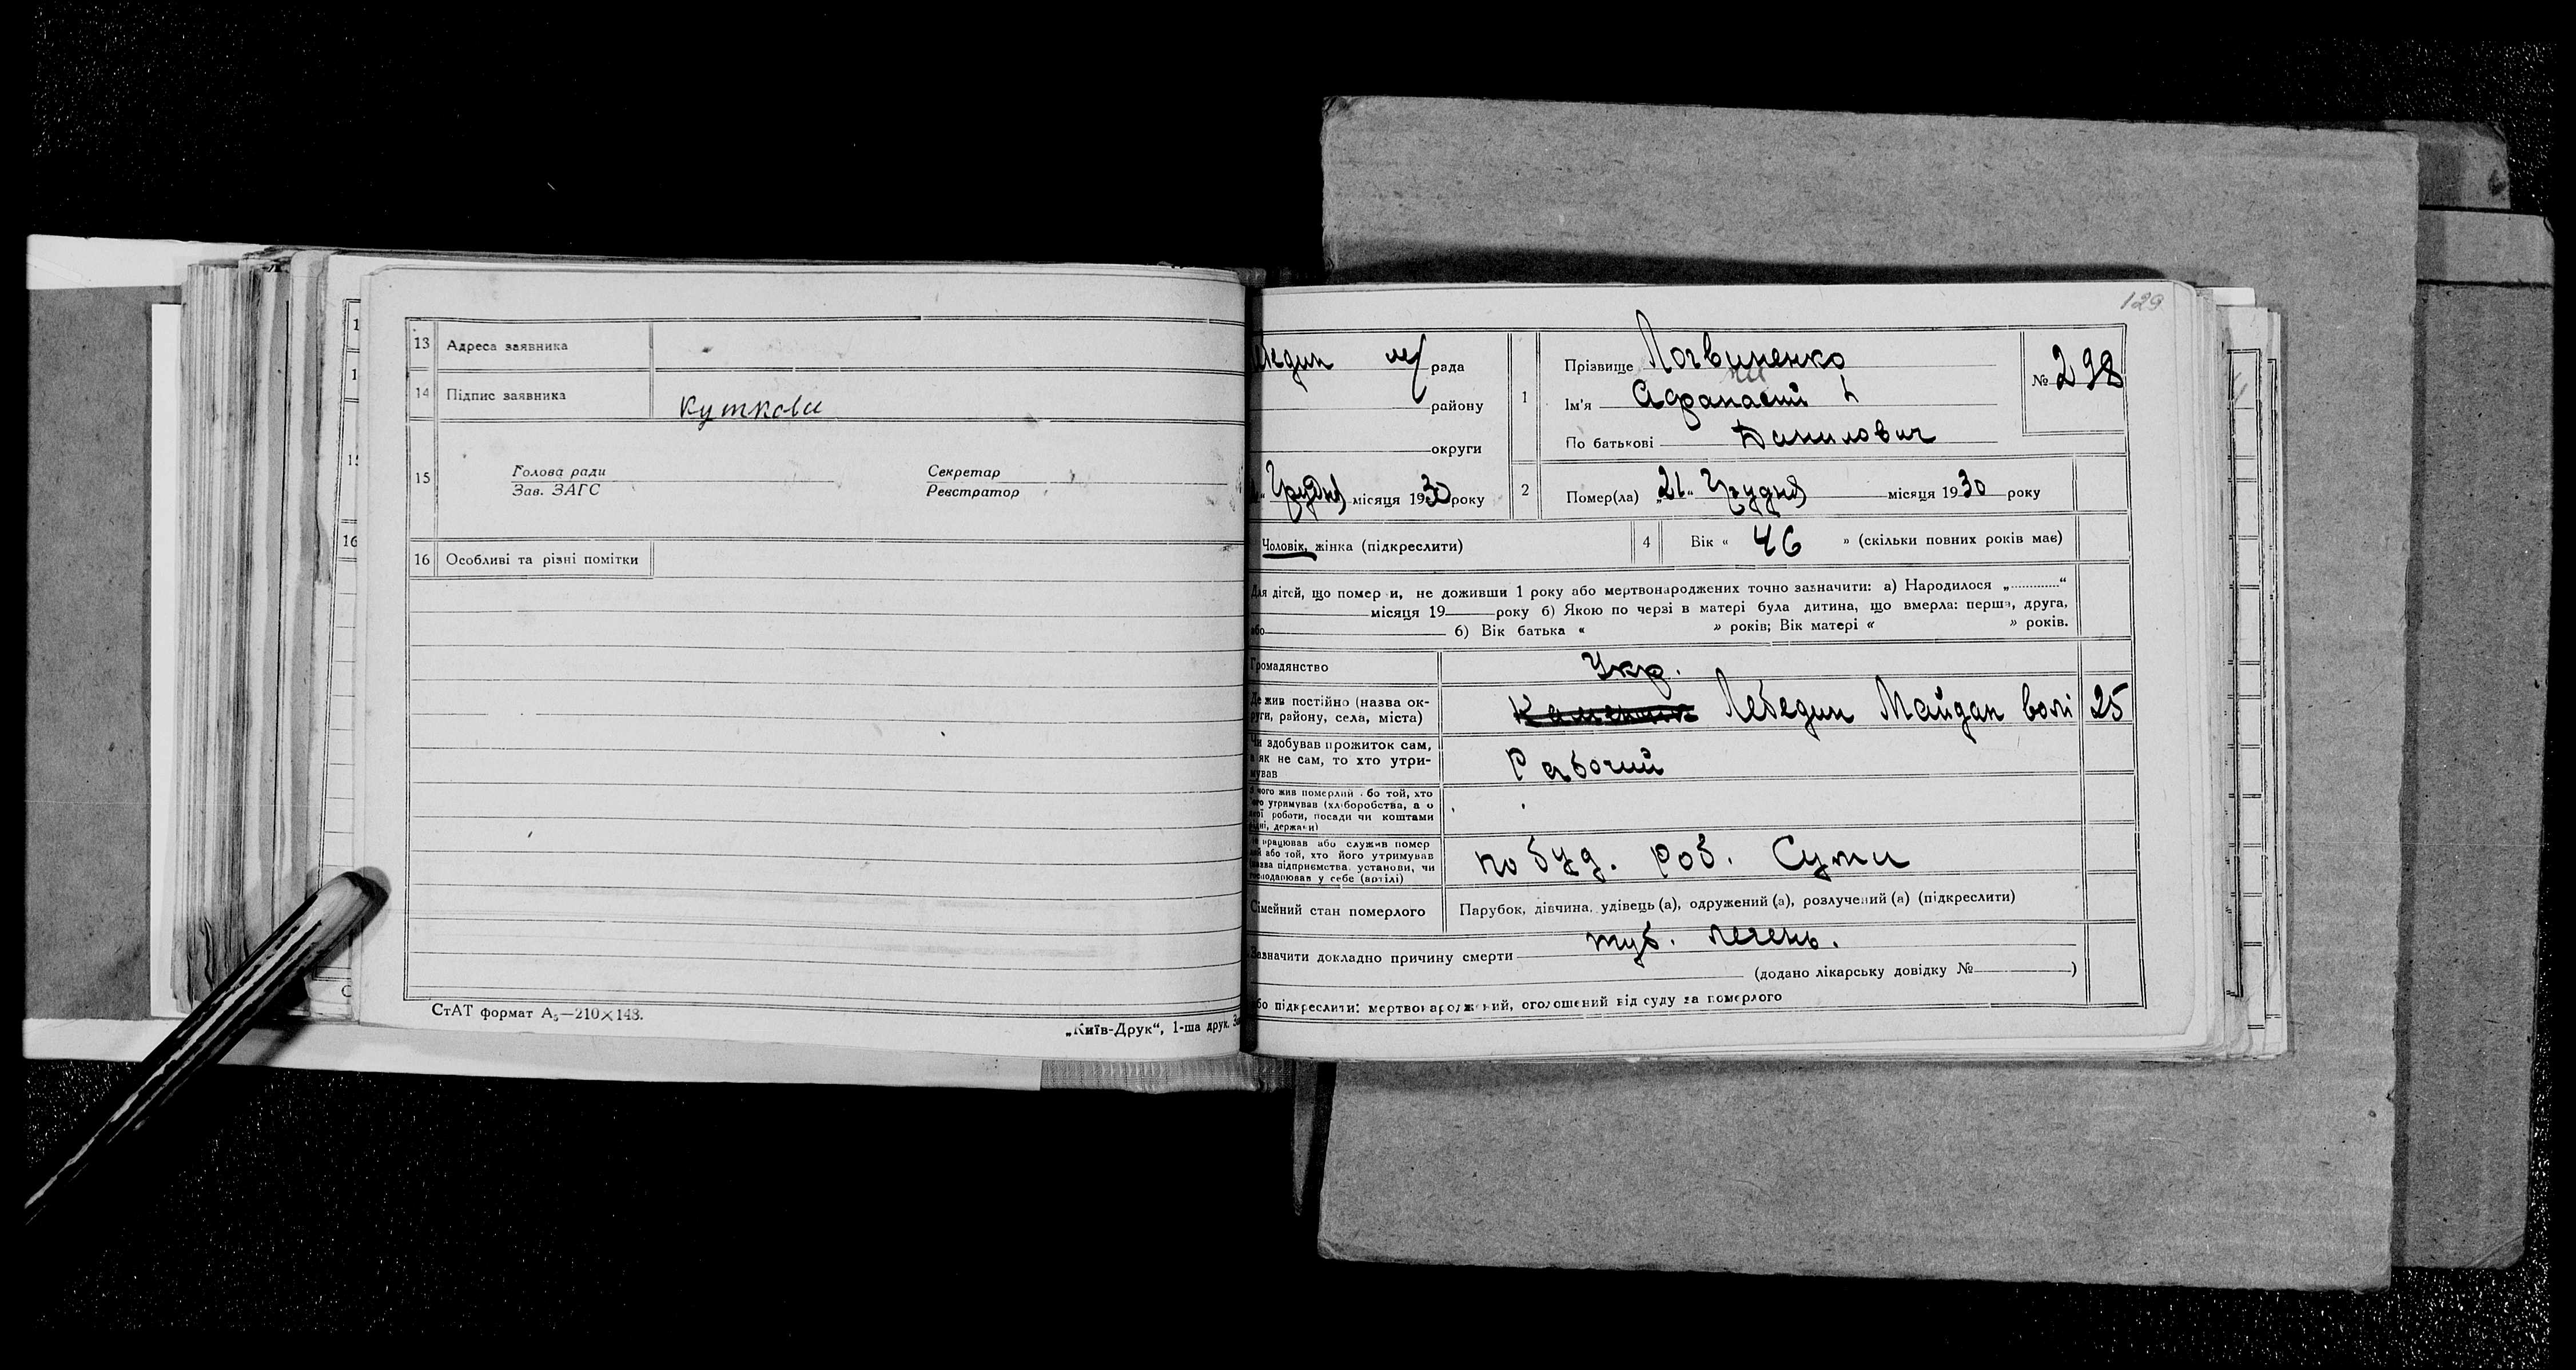 13 Адреса заявника
14 Підпис заявника Куткова
15 Голова ради Секретар
Зав. ЗАГС Реєстратор
16 Особливі та різні помітки
СтАТ формат А₅—210×148.
„Київ-Друк“, 1-ша друк.
129
рада
району
округи
Грудня місяця 1930 року
1 Прізвище Логвиненко
Ім'я Афанасий
По батькові Данилович
№ 298
2 Помер(ла) „21“ Грудня місяця 1930 року
Чоловік, жінка (підкреслити)
4 Вік « 46 » (скільки повних років має)
Для дітей, що померли, не доживши 1 року або мертвонароджених точно зазначити: а) Народилося „............“
місяця 19 року б) Якою по черзі в матері була дитина, що вмерла: перша, друга,
або б) Вік батька « » років; Вік матері « » років.
Громадянство Укр.
Де жив постійно (назва округи, району, села, міста) Лебедин Майдан волі 25
Чи здобував прожиток сам, а як не сам, то хто утримував
Рабочий
З чого жив померлий або той, хто його утримував (хліборобства, а о
роботи, посади чи коштами
держави)
працював або служив помер
або той, хто його утримував
(назва підприємства, установи, чи
господарював у себе (артілі)
по буд. роб. Суми
Сімейний стан померлого Парубок, дівчина, удівець (а), одружений (а), розлучений (а) (підкреслити)
Зазначити докладно причину смерти туб. легень.
(додано лікарську довідку № )
або підкреслити: мертвонароджений, оголошений від суду за померлого